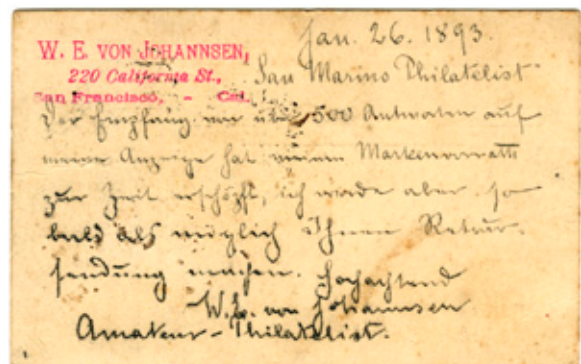 Jan. 26. 1893.
W. E. VON JOHANNSEN,
220 California St.,
San Francisco, - Cal.
San Marino Philatelist
Der Empfang von über 500 Antworten auf
meine Anzeige hat meinen Markenvorrath
zur Zeit erschöpft, ich werde aber so
bald als möglich Ihnen Retour-
sendung machen. Hochachtend
W. E. von Johannsen
Amateur-Philatelist.